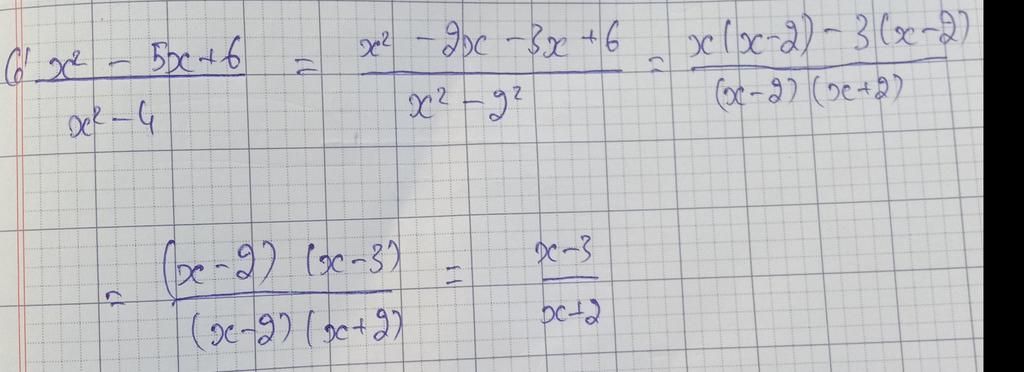 6) (x² - 5x + 6)/(x² - 4) = (x² - 2x - 3x + 6)/(x² - 2²) = (x(x-2) - 3(x-2))/((x-2)(x+2))
= ((x-2)(x-3))/((x-2)(x+2)) = (x-3)/(x+2)